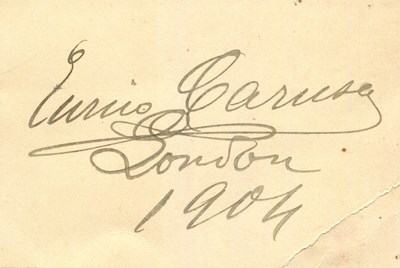 Enrico Caruso
London
1904